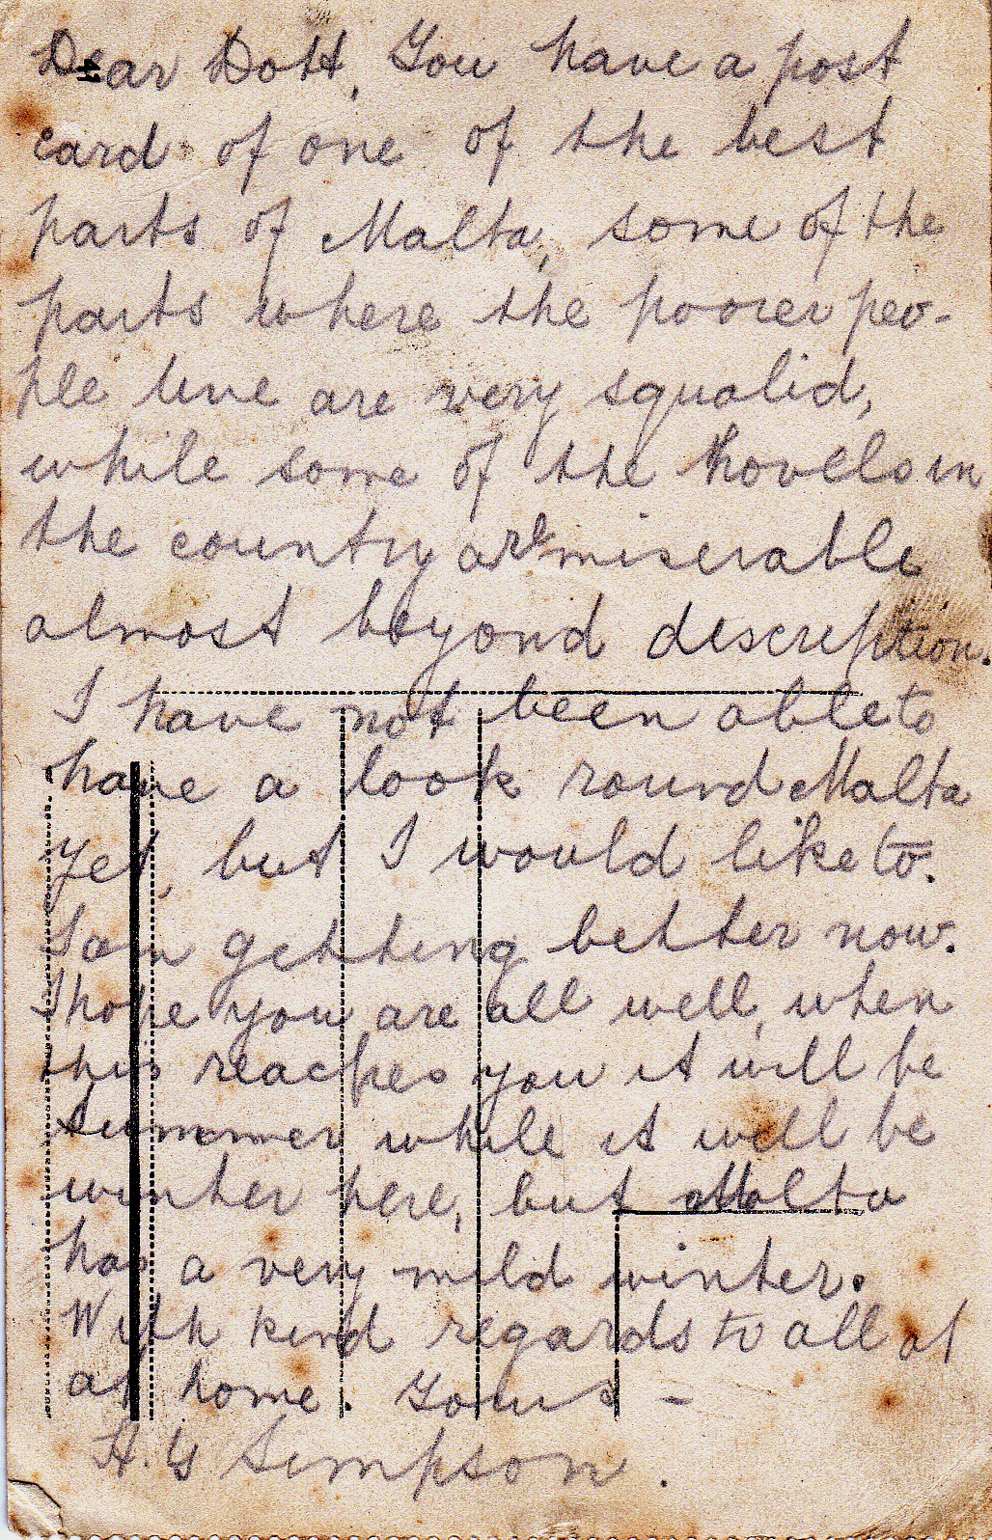 Dear Dott, You have a post
card of one of the best
parts of Malta, some of the
parts where the poorer peo-
ple live are very squalid,
while some of the hovels in
the country are miserable
almost beyond description.
I have not been able to
have a look round Malta
yet, but I would like to.
I am getting better now.
I hope you are all well, when
this reaches you it will be
summer while it will be
winter here, but Malta
has a very mild winter.
With kind regards to all at
at home. Yours -
Simpson.